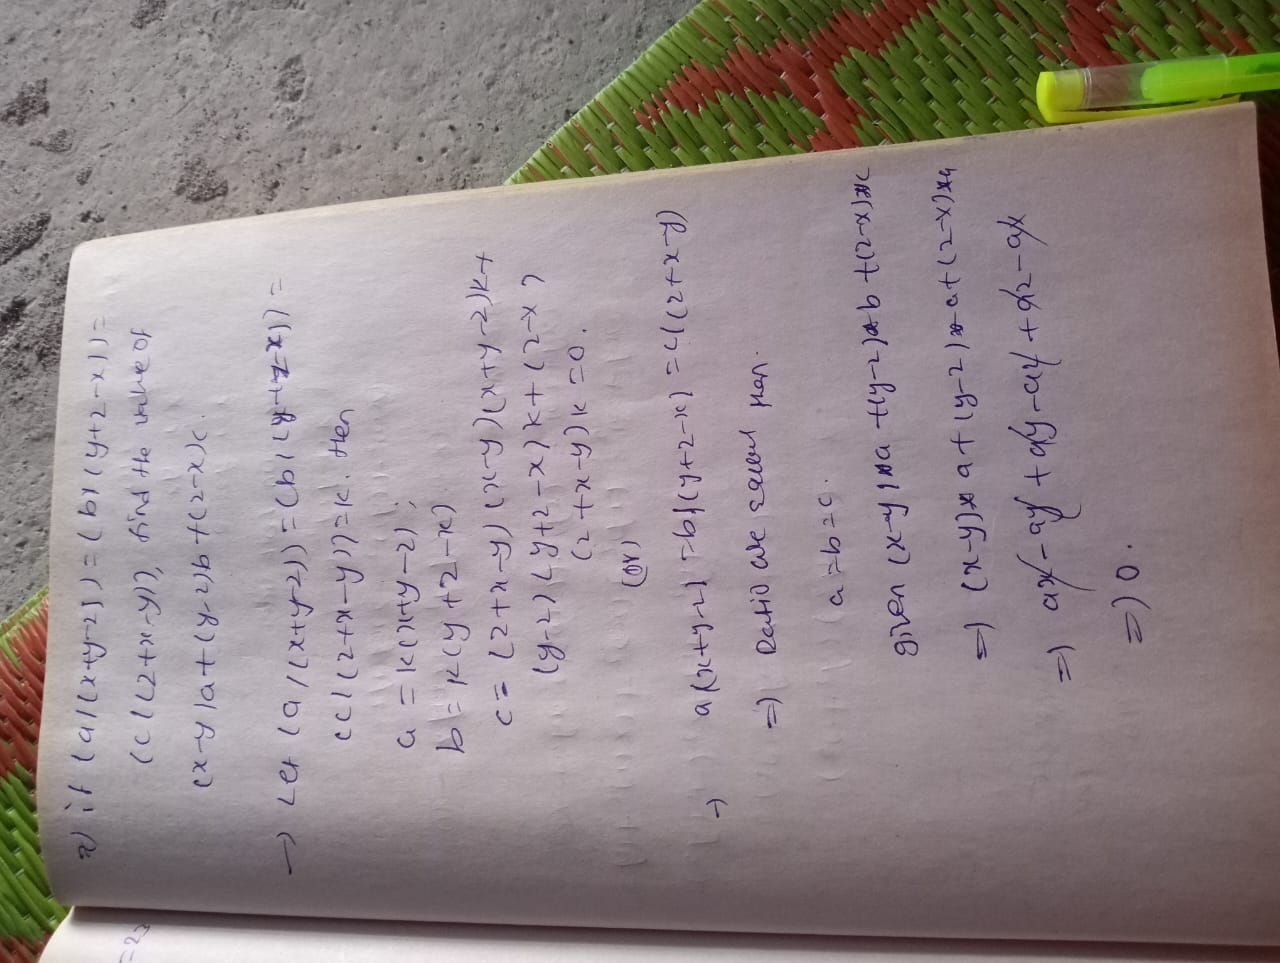 2) if (a/(x+y-2)) = (b/(y+2-x)) =
(c/(2+x-y)), find the value of
(x-y)a+(y-2)b+(2-x)c.
→ Let (a/(x+y-2)) = (b/(y+2-x)) =
c/(2+x-y)) = k. then
a = k(x+y-2);
b = k(y+2-x)
c = (2+x-y) (x-y)(x+y-2)k+
(y-2)(y+2-x)k+(2-x)
(2+x-y)k=0.
(or)
→ a/(x+y-2) = b/(y+2-x) = c/(2+x-y)
⇒ Ratio are equal then.
a=b=c.
given (x-y)a+(y-2)b+(2-x)c
⇒ (x-y)a+(y-2)a+(2-x)a
⇒ ax-ay+ay-a2+a2-ax
⇒ 0.